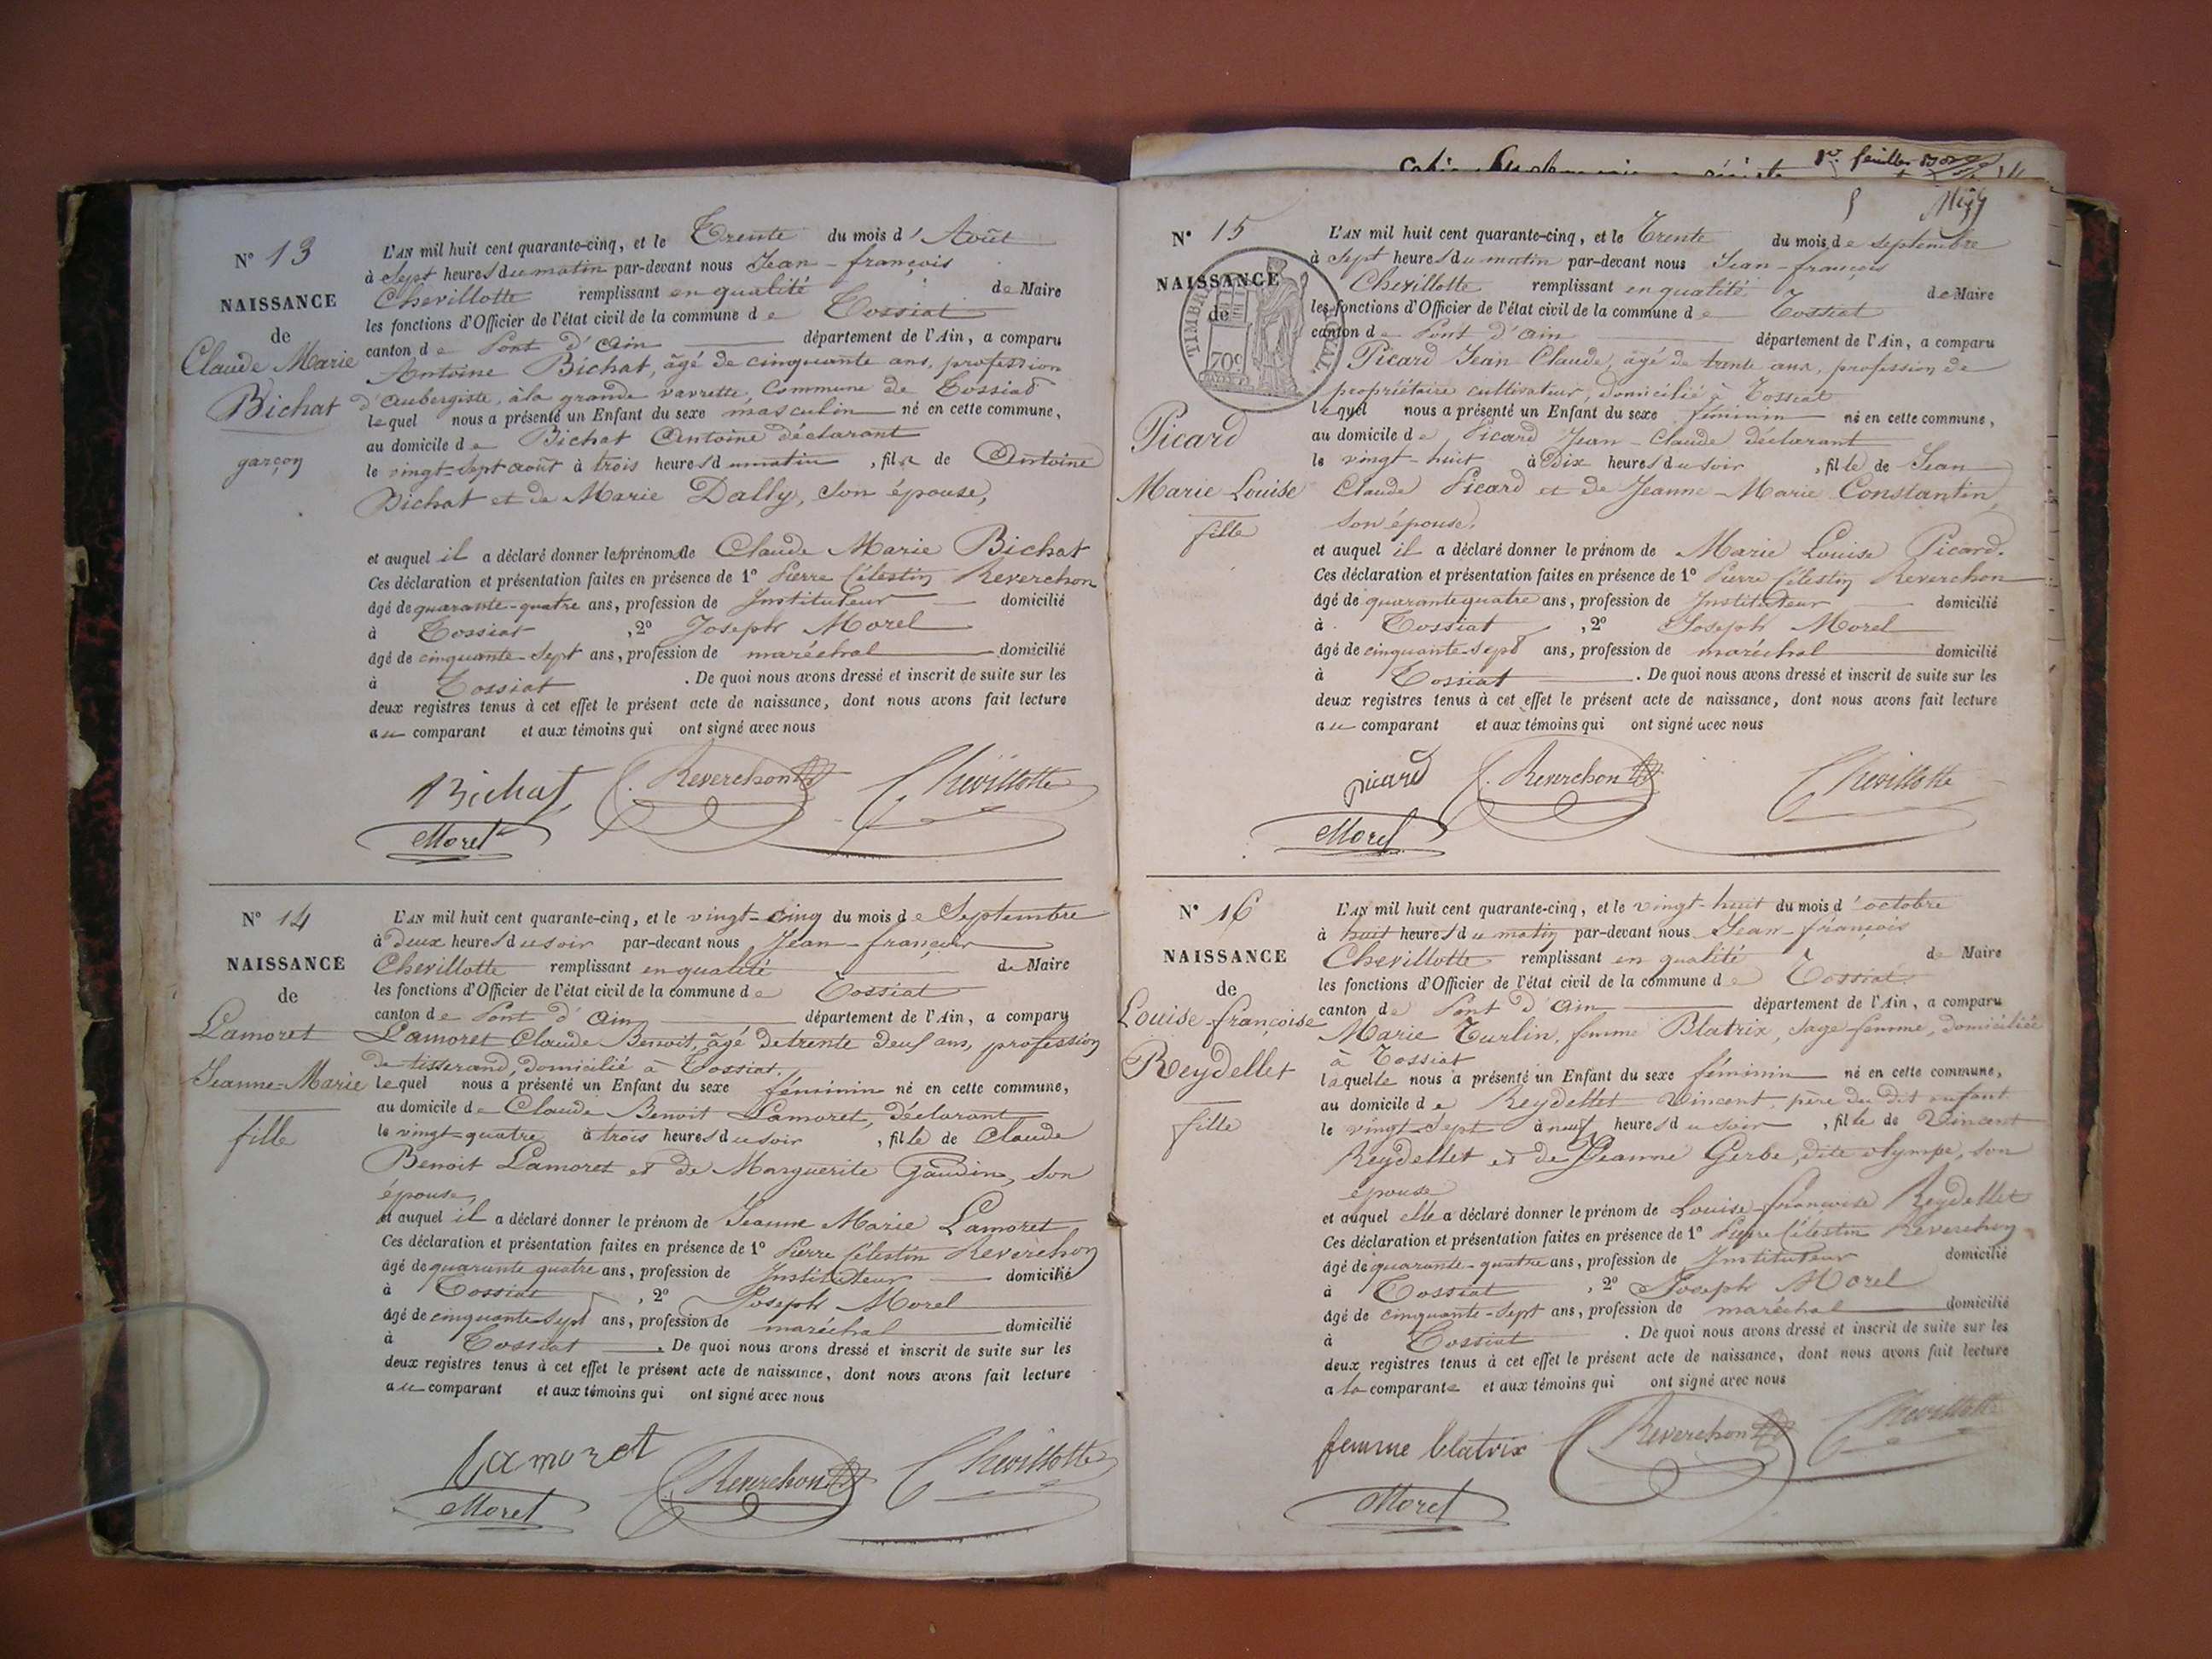 N° 13
NAISSANCE
de
Claude Marie
Bichat
garçon
L'AN mil huit cent quarante-cinq, et le Trente du mois d'Août
à Sept heures du matin par-devant nous Jean-françois
Chevillotte remplissant en qualité de Maire
les fonctions d'Officier de l'état civil de la commune de Tossiat
canton de Pont d'Ain département de l'Ain, a comparu
Antoine Bichat, âgé de cinquante ans, profession
d'Aubergiste, à la grande vavrette, Commune de Tossiat
lequel nous a présenté un Enfant du sexe masculin né en cette commune,
au domicile de Bichat Antoine déclarant
le vingt-sept août à trois heures du matin, fils de Antoine
Bichat et de Marie Dally, son épouse,
et auquel il a déclaré donner les prénoms de Claude Marie Bichat
Ces déclaration et présentation faites en présence de 1° Pierre Célestin Reverchon
âgé de quarante-quatre ans, profession de Instituteur domicilié
à Tossiat, 2° Joseph Morel
âgé de cinquante-sept ans, profession de maréchal domicilié
à Tossiat. De quoi nous avons dressé et inscrit de suite sur les
deux registres tenus à cet effet le présent acte de naissance, dont nous avons fait lecture
au comparant et aux témoins qui ont signé avec nous
Bichat C. Reverchon Chevillotte
Morel
N° 14
NAISSANCE
de
Lamoret
Jeanne-Marie
fille
L'AN mil huit cent quarante-cinq, et le vingt-cinq du mois de Septembre
à Deux heures du soir par-devant nous Jean-françois
Chevillotte remplissant en qualité de Maire
les fonctions d'Officier de l'état civil de la commune de Tossiat
canton de Pont d'Ain département de l'Ain, a comparu
Lamoret Claude Benoit, âgé de trente deux ans, profession
de tisserand, domicilié à Tossiat.
lequel nous a présenté un Enfant du sexe féminin né en cette commune,
au domicile de Claude Benoit Lamoret, déclarant
le vingt-quatre à trois heures du soir, fille de Claude
Benoit Lamoret et de Marguerite Gaudin, son
épouse,
et auquel il a déclaré donner le prénom de Jeanne Marie Lamoret
Ces déclaration et présentation faites en présence de 1° Pierre Célestin Reverchon
âgé de quarante quatre ans, profession de Instituteur domicilié
à Tossiat, 2° Joseph Morel
âgé de cinquante-sept ans, profession de maréchal domicilié
à Tossiat. De quoi nous avons dressé et inscrit de suite sur les
deux registres tenus à cet effet le présent acte de naissance, dont nous avons fait lecture
au comparant et aux témoins qui ont signé avec nous
Lamoret C. Reverchon Chevillotte
Morel
feuillet
N° 15
NAISSANCE
de
TIMBRE
70c
Picard
Marie Louise
fille
L'AN mil huit cent quarante-cinq, et le Trente du mois de septembre
à sept heures du matin par-devant nous Jean-françois
Chevillotte remplissant en qualité de Maire
les fonctions d'Officier de l'état civil de la commune de Tossiat
canton de Pont d'Ain département de l'Ain, a comparu
Picard Jean Claude, âgé de trente ans, profession de
propriétaire cultivateur, domicilié à Tossiat
lequel nous a présenté un Enfant du sexe féminin né en cette commune,
au domicile de Picard Jean-Claude déclarant
le vingt-huit à Dix heures du soir, fille de Jean
Claude Picard et de Jeanne-Marie Constantin,
son épouse,
et auquel il a déclaré donner le prénom de Marie Louise Picard.
Ces déclaration et présentation faites en présence de 1° Pierre Célestin Reverchon
âgé de quarante quatre ans, profession de Instituteur domicilié
à Tossiat, 2° Joseph Morel
âgé de cinquante-sept ans, profession de maréchal domicilié
à Tossiat. De quoi nous avons dressé et inscrit de suite sur les
deux registres tenus à cet effet le présent acte de naissance, dont nous avons fait lecture
au comparant et aux témoins qui ont signé avec nous
picard C. Reverchon Chevillotte
Morel
N° 16
NAISSANCE
de
Louise françoise
Reydellet
fille
L'AN mil huit cent quarante-cinq, et le vingt-huit du mois d'octobre
à huit heures du matin par-devant nous Jean-françois
Chevillotte remplissant en qualité de Maire
les fonctions d'Officier de l'état civil de la commune de Tossiat
canton de Pont d'Ain département de l'Ain, a comparu
Marie Turlin, femme Blatrix, sage-femme, domiciliée
à Tossiat
laquelle nous a présenté un Enfant du sexe féminin né en cette commune,
au domicile de Reydellet Vincent, père du dit enfant
le vingt-sept à neuf heures du soir, fille de Vincent
Reydellet et de Jeanne Gerbe, dite olympe, son
épouse
et auquel elle a déclaré donner le prénom de Louise-françoise Reydellet
Ces déclaration et présentation faites en présence de 1° Pierre Célestin Reverchon
âgé de quarante-quatre ans, profession de Instituteur domicilié
à Tossiat, 2° Joseph Morel
âgé de cinquante-sept ans, profession de maréchal domicilié
à Tossiat. De quoi nous avons dressé et inscrit de suite sur les
deux registres tenus à cet effet le présent acte de naissance, dont nous avons fait lecture
a la comparante et aux témoins qui ont signé avec nous
femme blatrix C. Reverchon Chevillotte
Morel